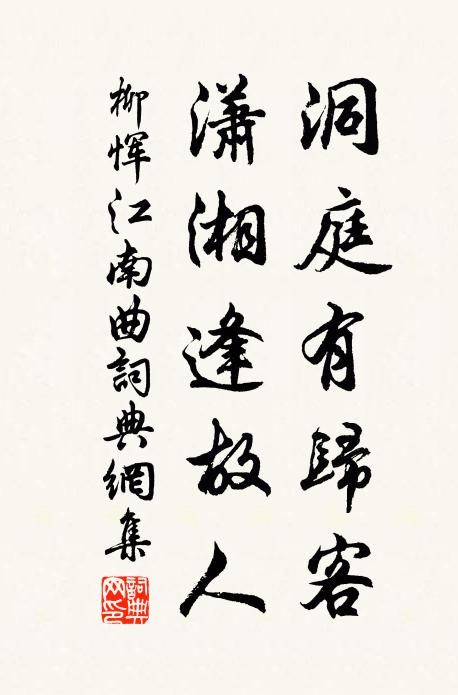 洞庭有歸客
瀟湘逢故人
柳惲江南曲詞典網集
詞典
网印